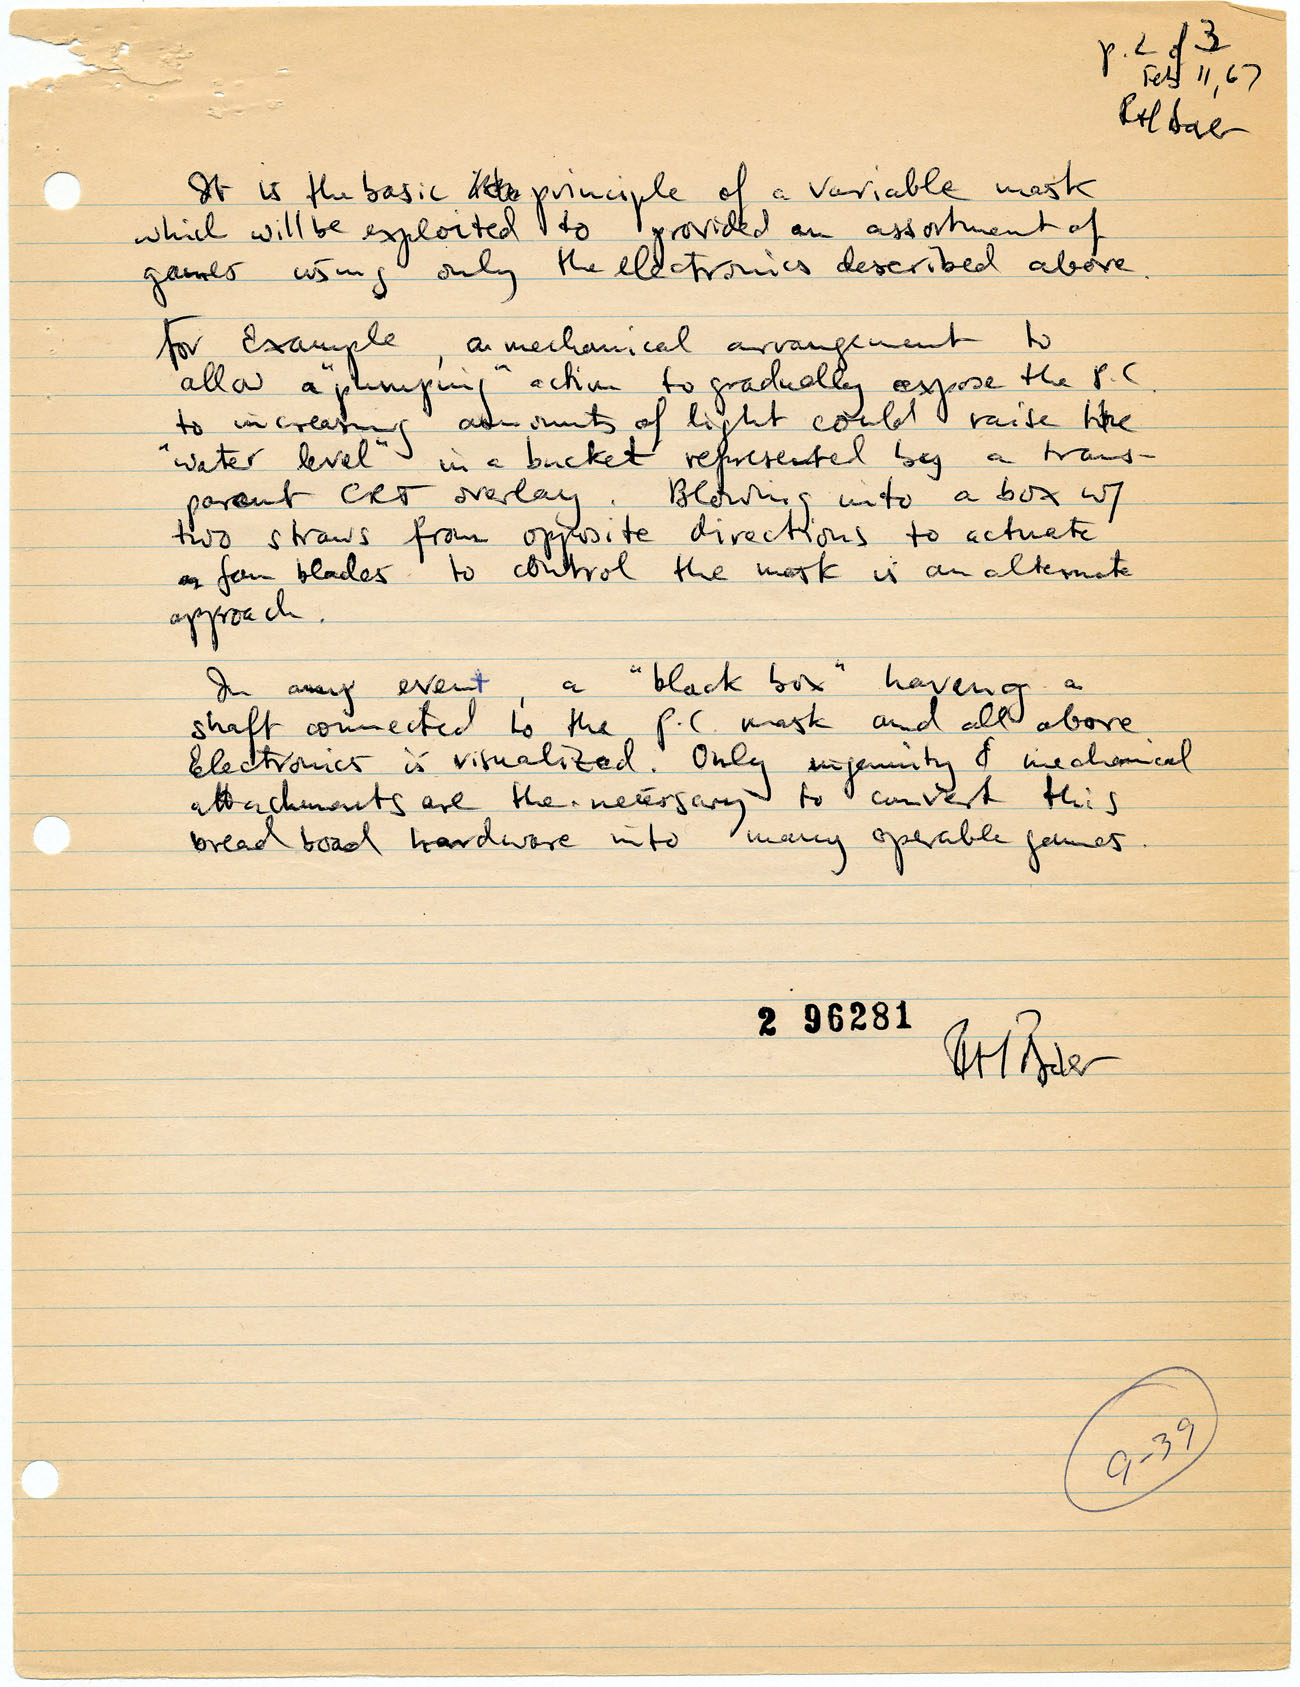 p. 2 of 3
Feb 11, 67
RH Baer
It is the basic principle of a variable mask
which will be exploited to provided an assortment of
games using only the electronics described above.
For Example, a mechanical arrangement to
allow a "pumping" action to gradually expose the P.C.
to increasing amounts of light could raise the
"water level" in a bucket represented by a trans-
parent CRT overlay. Blowing into a box w/
two straws from opposite directions to actuate
a fan blades to control the mask is an alternate
approach.
In any event, a "black box" having a
shaft connected to the P.C. mask and all above
Electronics is visualized. Only ingenuity & mechanical
attachments are the necessary to convert this
bread boad hardware into many operable games.
2 96281
RH Baer
9-39